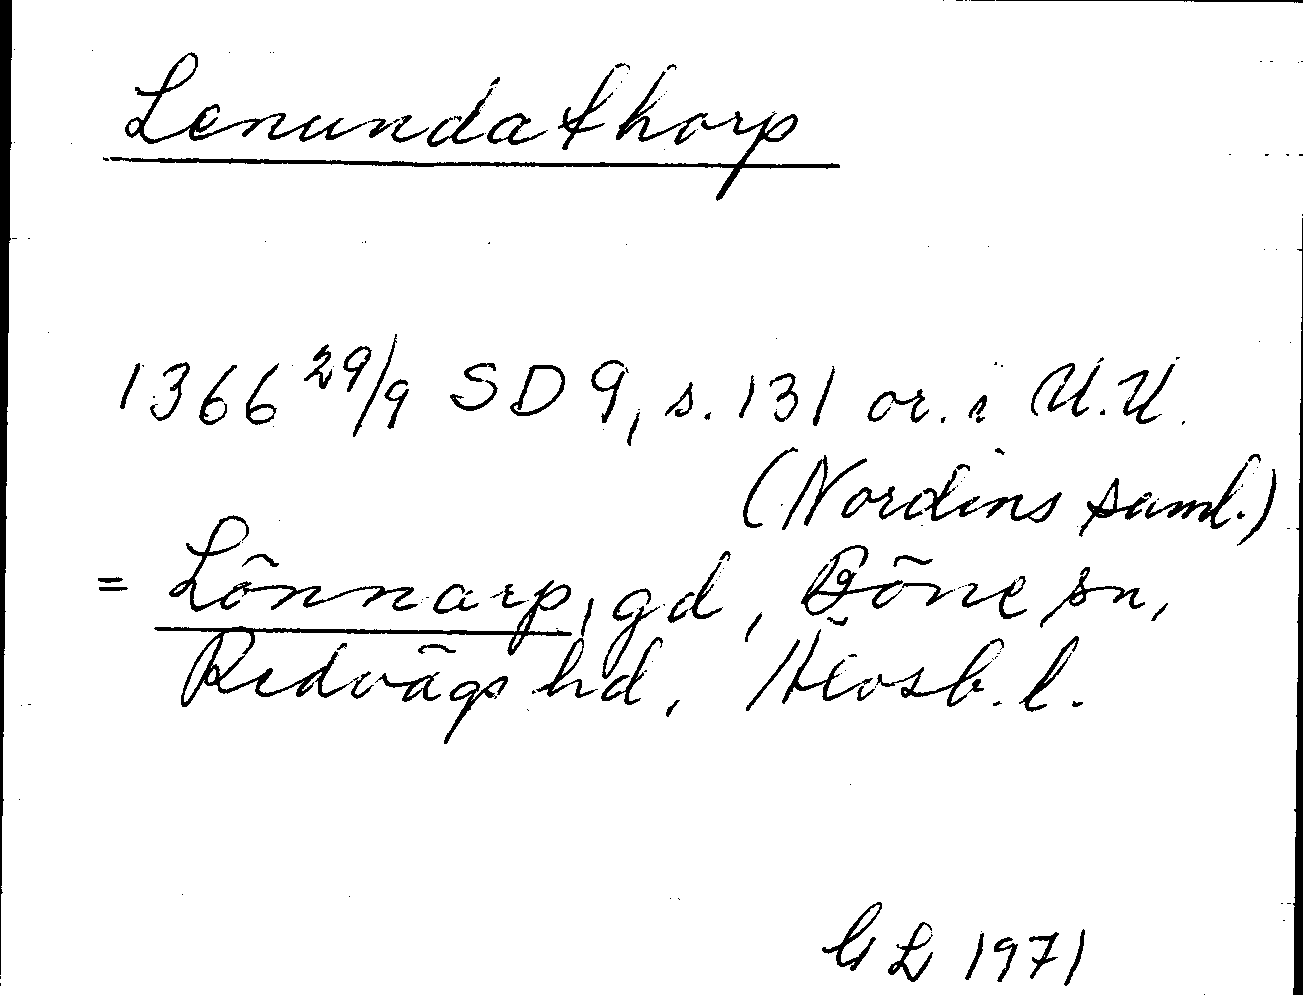 Lenundathorp
1366 29/9 SD 9, s. 131 or. i U.U.
(Nordins saml.)
= Lönnarp, gd, Böne sn,
Redvägs hd, Älvsb. l.
GL 1971